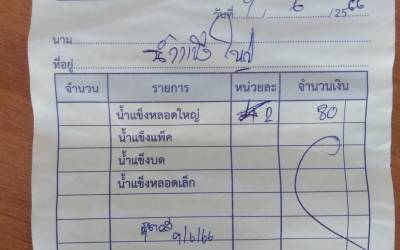 วันที่ 9 / 6 / 2566
นาม
ที่อยู่
จำนวน รายการ หน่วยละ จำนวนเงิน
น้ำแข็งหลอดใหญ่ 2 80
น้ำแข็งแพ็ค
น้ำแข็งบด
น้ำแข็งหลอดเล็ก
9/6/66